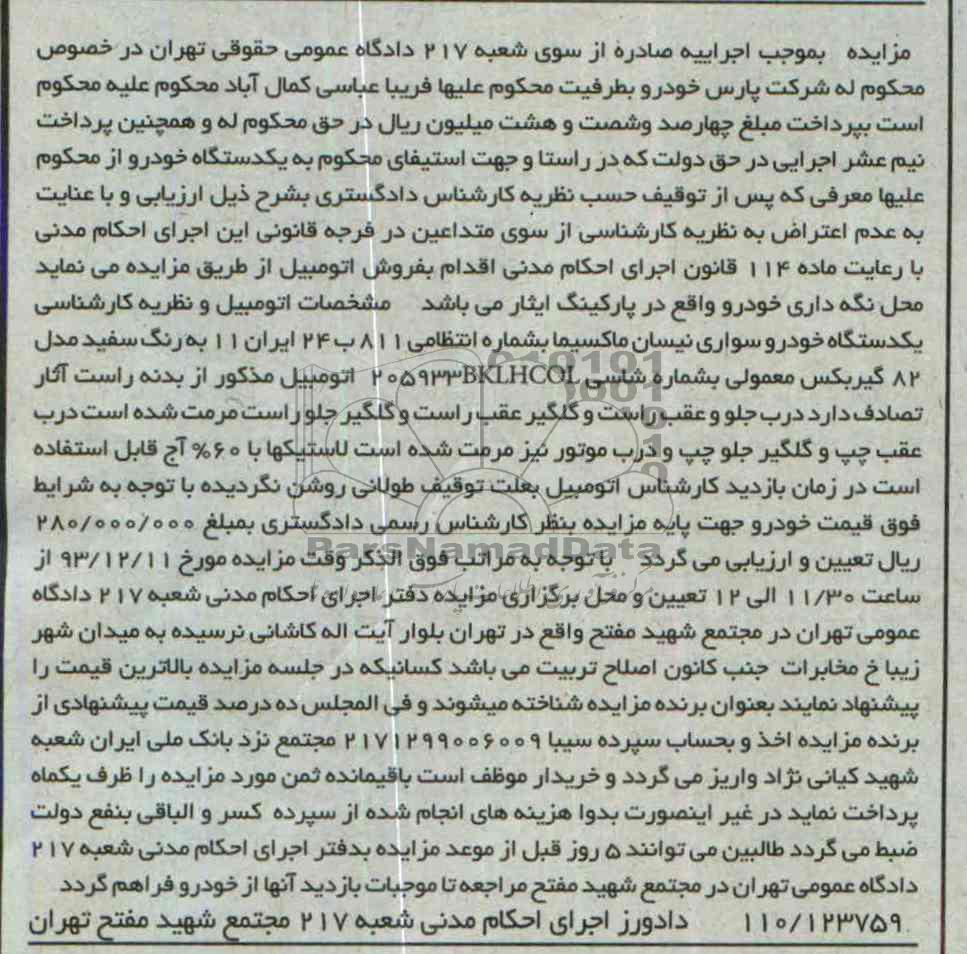 مزایده بموجب اجراییه صادره از سوی شعبه ۲۱۷ دادگاه عمومی حقوقی تهران در خصوص
محکوم له شرکت پارس خودرو بطرفیت محکوم علیها فریبا عباسی کمال آباد محکوم علیه محکوم
است بپرداخت مبلغ چهارصد وشصت و هشت میلیون ریال در حق محکوم له و همچنین پرداخت
نیم عشر اجرایی در حق دولت که در راستا و جهت استیفای محکوم به یکدستگاه خودرو از محکوم
علیها معرفی که پس از توقیف حسب نظریه کارشناس دادگستری بشرح ذیل ارزیابی و با عنایت
به عدم اعتراض به نظریه کارشناسی از سوی متداعین در فرجه قانونی این اجرای احکام مدنی
با رعایت ماده ۱۱۴ قانون اجرای احکام مدنی اقدام بفروش اتومبیل از طریق مزایده می نماید
محل نگه داری خودرو واقع در پارکینگ ایثار می باشد مشخصات اتومبیل و نظریه کارشناسی
یکدستگاه خودرو سواری نیسان ماکسیما بشماره انتظامی ۸۱۱ ب ۲۴ ایران ۱۱ به رنگ سفید مدل
۸۲ گیربکس معمولی بشماره شاسی ۲۰۵۹۳۳BKLHCOL اتومبیل مذکور از بدنه راست آثار
تصادف دارد درب جلو و عقب راست و گلگیر عقب راست و گلگیر جلو راست مرمت شده است درب
عقب چپ و گلگیر جلو چپ و درب موتور نیز مرمت شده است لاستیکها با ۶۰% آج قابل استفاده
است در زمان بازدید کارشناس اتومبیل بعلت توقیف طولانی روشن نگردیده با توجه به شرایط
فوق قیمت خودرو جهت پایه مزایده بنظر کارشناس رسمی دادگستری بمبلغ ۲۸۰/۰۰۰/۰۰۰
ریال تعیین و ارزیابی می گردد با توجه به مراتب فوق الذکر وقت مزایده مورخ ۹۳/۱۲/۱۱ از
ساعت ۱۱/۳۰ الی ۱۲ تعیین و محل برگزاری مزایده دفتر اجرای احکام مدنی شعبه ۲۱۷ دادگاه
عمومی تهران در مجتمع شهید مفتح واقع در تهران بلوار آیت اله کاشانی نرسیده به میدان شهر
زیبا خ مخابرات جنب کانون اصلاح تربیت می باشد کسانیکه در جلسه مزایده بالاترین قیمت را
پیشنهاد نمایند بعنوان برنده مزایده شناخته میشوند و فی المجلس ده درصد قیمت پیشنهادی از
برنده مزایده اخذ و بحساب سپرده سیبا ۲۱۷۱۲۹۹۰۰۶۰۰۹ مجتمع نزد بانک ملی ایران شعبه
شهید کیانی نژاد واریز می گردد و خریدار موظف است باقیمانده ثمن مورد مزایده را ظرف یکماه
پرداخت نماید در غیر اینصورت بدوا هزینه های انجام شده از سپرده کسر و الباقی بنفع دولت
ضبط می گردد طالبین می توانند ۵ روز قبل از موعد مزایده بدفتر اجرای احکام مدنی شعبه ۲۱۷
دادگاه عمومی تهران در مجتمع شهید مفتح مراجعه تا موجبات بازدید آنها از خودرو فراهم گردد
۱۱۰/۱۲۳۷۵۹ دادورز اجرای احکام مدنی شعبه ۲۱۷ مجتمع شهید مفتح تهران
ParsNamadData